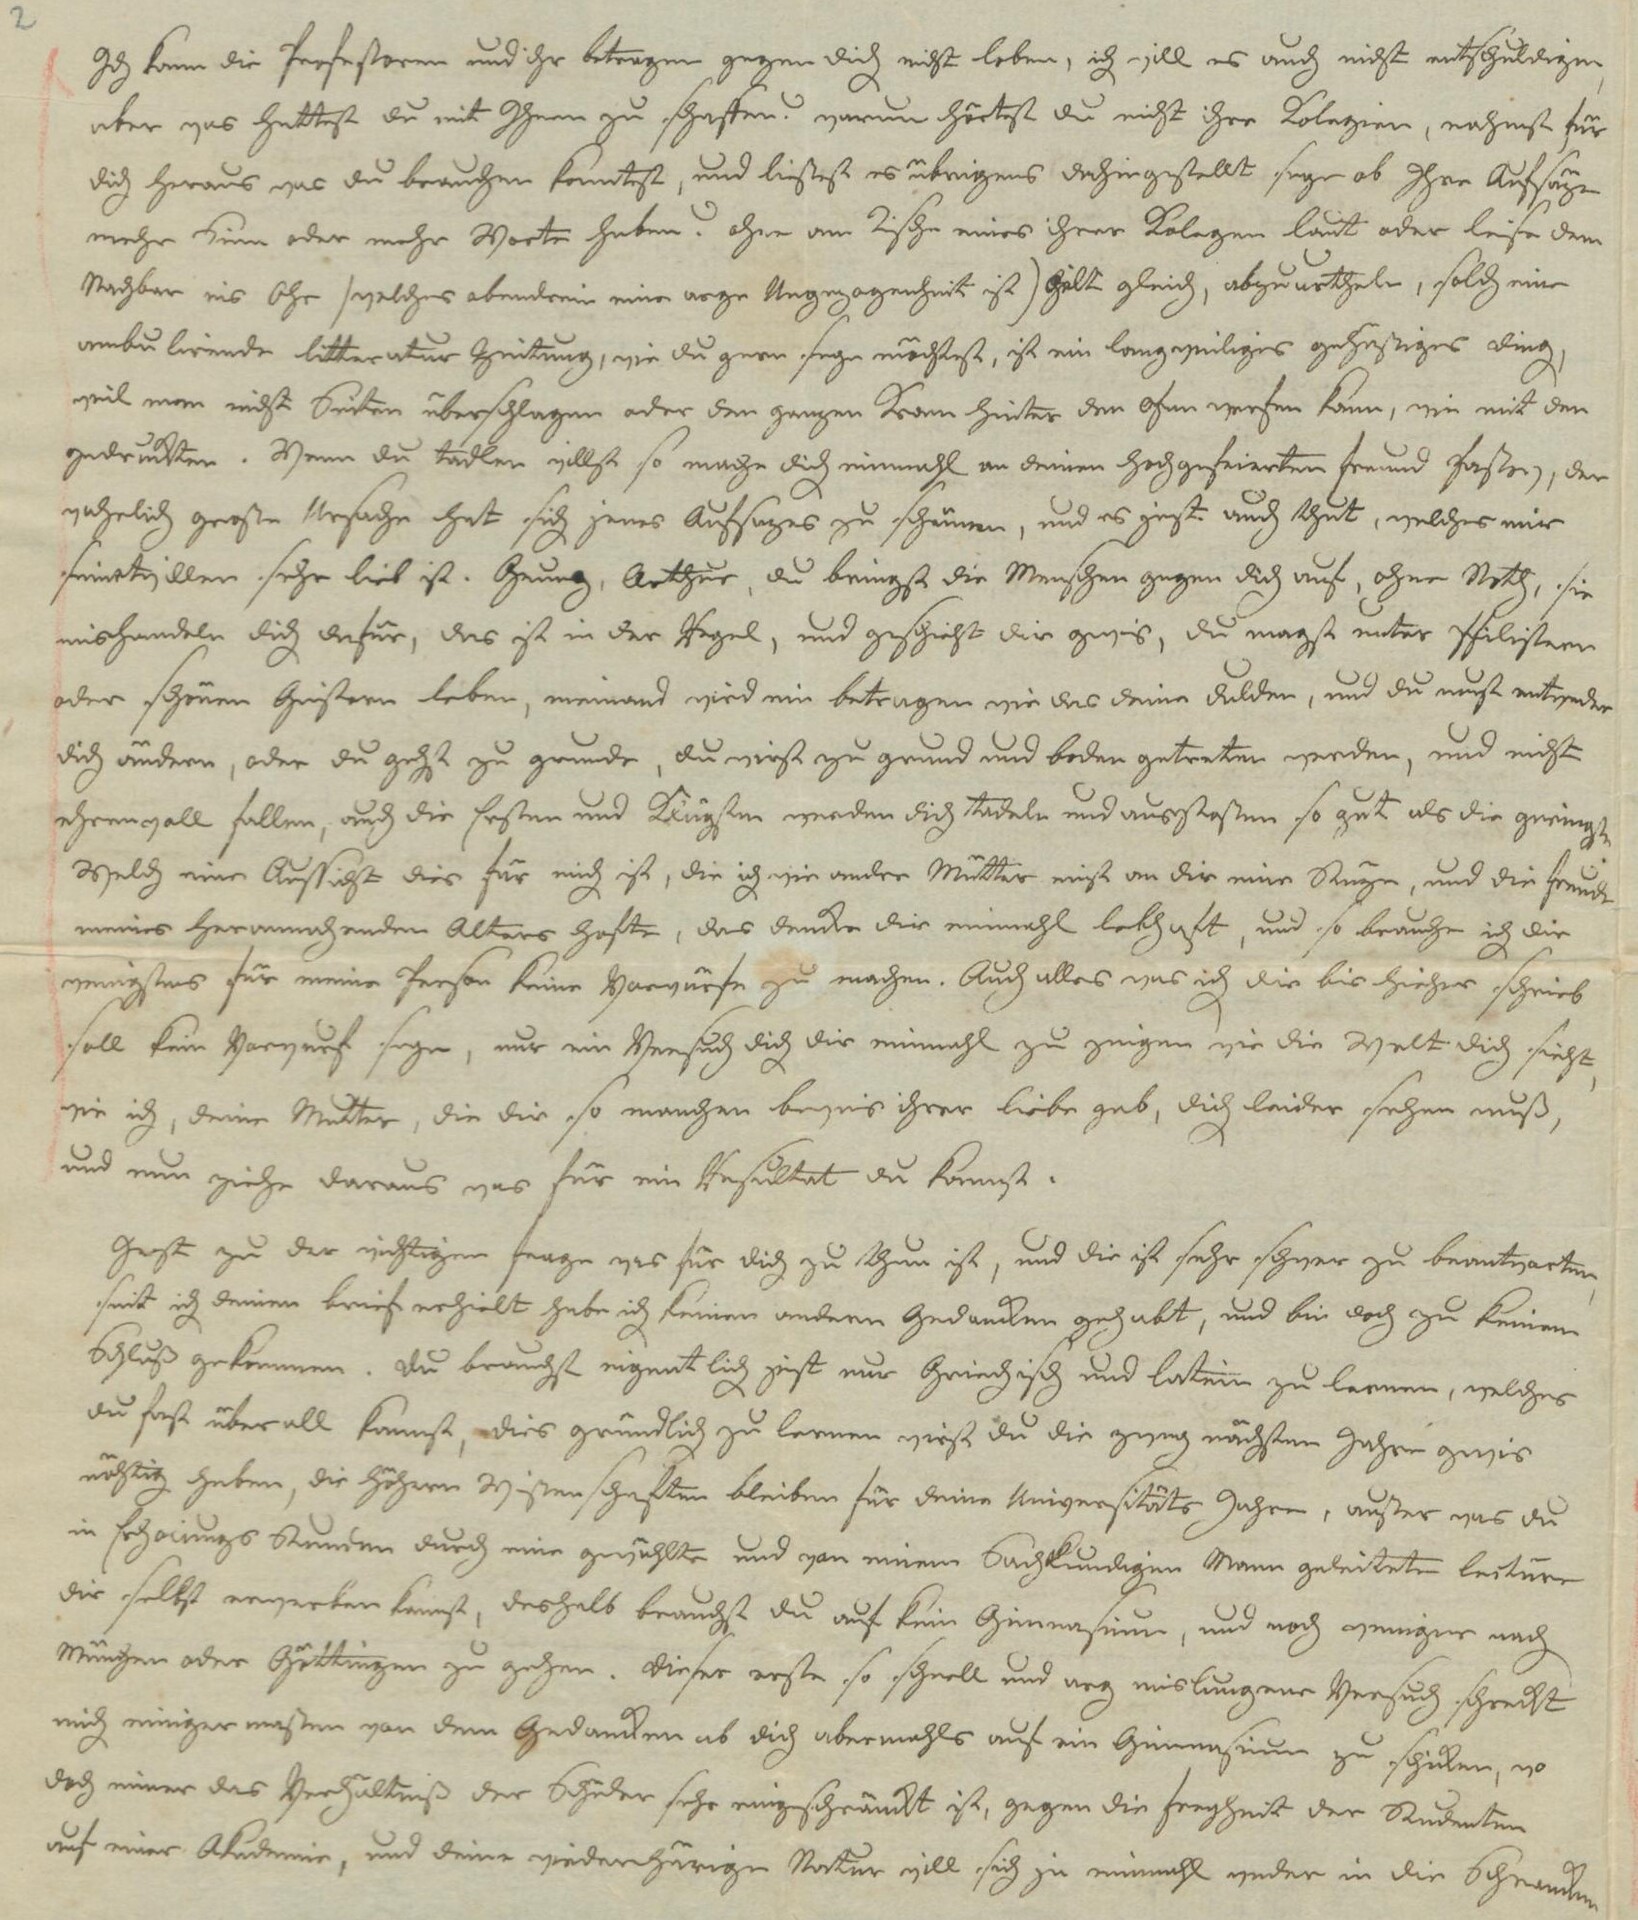 2
Ich kann die Professoren und ihr betragen gegen dich nicht loben, ich will es auch nicht entschuldigen,
aber was hattest du mit Ihnen zu schaffen? warum hörtest du nicht ihre Kolegien, nahmst für
dich heraus was du brauchen konntest, und liessest es übrigens dahingestellt seyn ob Ihre Aufsäze
mehr Sinn oder mehr Worte haben? ohne am Tische eines ihrer Kolegen laut oder leise dem
Nachbar ins Ohr (welches obendrein eine arge Ungezogenheit ist) gilt gleich, abzuurtheln, solch eine
ambulirende litteratur Zeitung, wie du gern seyn möchtest, ist ein langweiliges gehässiges ding,
weil man nicht Seiten überschlagen oder den ganzen Kram hinter den Ofen werfen kann, wie mit den
gedruckten. Wenn du tadlen willst so mache dich einmahl an deinen hochgefeierten freund Fassow, der
wahrlich grosse Ursache hat sich jenes Aufsazes zu schämen, und es jezt auch thut, welches mir
seinetwillen sehr lieb ist. Genug, Arthur, du bringst die Menschen gegen dich auf, ohne Noth, sie
mishandeln dich dafür, das ist in der Regel, und geschieht dir gewis, du magst unter Philistern
oder schönen Geistern leben, niemand wird ein betragen wie das deine dulden, und du must entweder
dich ändern, oder du gehst zu grunde, du wirst zu grund und boden getreten werden, und nicht
ehrenvoll fallen, auch die Ersten und Klügsten werden dich tadeln und ausstossen so gut als die geringsten
Welch eine Aussicht dies für mich ist, die ich wie andre Mütter einst an dir eine Stüze, und die freude
meines herannahenden Alters hofte, das dencke dir einmahl lebhaft, und so brauche ich dir
wenigstens für meine Person keine Vorwürfe zu machen. Auch alles was ich dir bis hieher schrieb
soll kein Vorwurf seyn, nur ein Versuch dich dir einmahl zu zeigen wie die Welt dich sieht,
wie ich, deine Mutter, die dir so manchen beweis ihrer liebe gab, dich leider sehen muß,
und nun ziehe daraus was für ein Resultat du kannst.
Jezt zu der wichtigen frage was für dich zu thun ist, und die ist sehr schwer zu beantworten,
seit ich deinen brief erhielt habe ich keinen andern Gedancken gehabt, und bin doch zu keinem
Schluß gekommen. Du brauchst eigentlich jezt nur Griechisch und latein zu lernen, welches
du fast überall kannst, dies gründlich zu lernen wirst du die zwey nächsten Jahre gewis
nöthig haben, die höhern Wissenschaften bleiben für deine Universitäts Jahre, ausser was du
in Erholungs Stunden durch eine gewählte und von einem Sachkundigen Mann geleitete lectüre
dir selbst erwerben kannst, deshalb brauchst du auf kein Gimnasium, und noch weniger nach
München oder Göttingen zu gehen. Dieser erste so schnell und arg mislungene Versuch schreckt
mich einigermassen von dem Gedancken ab dich abermahls auf ein Gimnasium zu schicken, wo
doch immer das Verhältniß der Schüler sehr eingeschränckt ist, gegen die freyheit der Studenten
auf einer Akademie, und deine wiederhaarige Natur will sich ja einmahl weder in die Schrancken